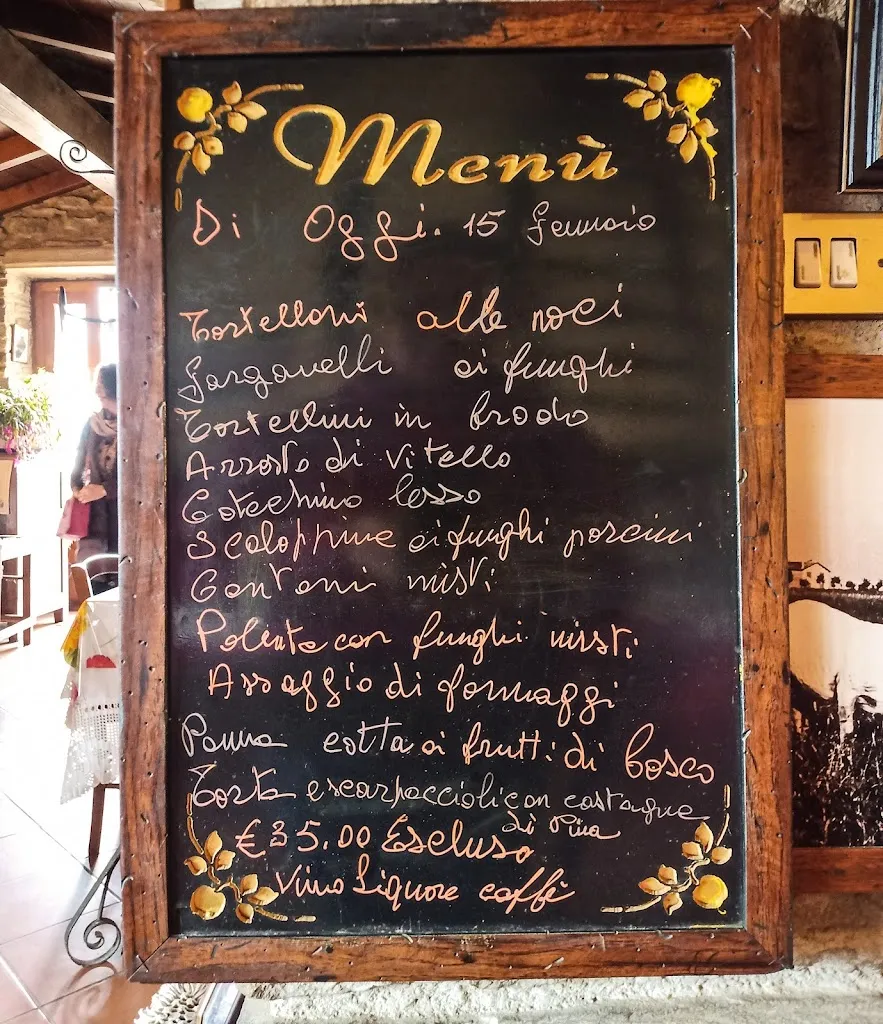 Menù
Di Oggi. 15 Gennaio
Tortelloni alle noci
Garganelli ai funghi
Tortellini in brodo
Arrosto di vitello
Cotechino lesso
Scaloppine ai funghi porcini
Contorni misti
Polenta con funghi misti
Assaggio di formaggi
Panna cotta ai frutti di bosco
Torta e scarpaccioli con castagne
di Pina
€ 35.00 Escluso
Vino Liquore caffè